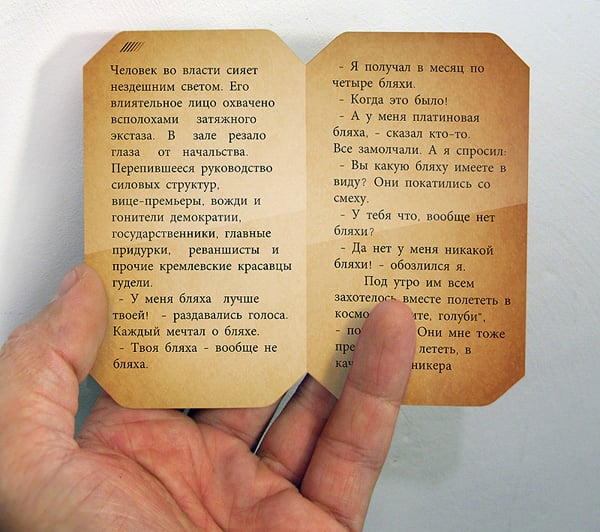 Человек во власти сияет
нездешним светом. Его
влиятельное лицо охвачено
всполохами затяжного
экстаза. В зале резало
глаза от начальства.
Перепившееся руководство
силовых структур,
вице-премьеры, вожди и
гонители демократии,
государственники, главные
придурки, реваншисты и
прочие кремлевские красавцы
гудели.
- У меня бляха лучше
твоей! - раздавались голоса.
Каждый мечтал о бляхе.
- Твоя бляха - вообще не
бляха.
- Я получал в месяц по
четыре бляхи.
- Когда это было!
- А у меня платиновая
бляха, - сказал кто-то.
Все замолчали. А я спросил:
- Вы какую бляху имеете в
виду? Они покатились со
смеху.
- У тебя что, вообще нет
бляхи?
- Да нет у меня никакой
бляхи! - обозлился я.
Под утро им всем
захотелось вместе полететь в
голуби",
- Они мне тоже
лететь, в